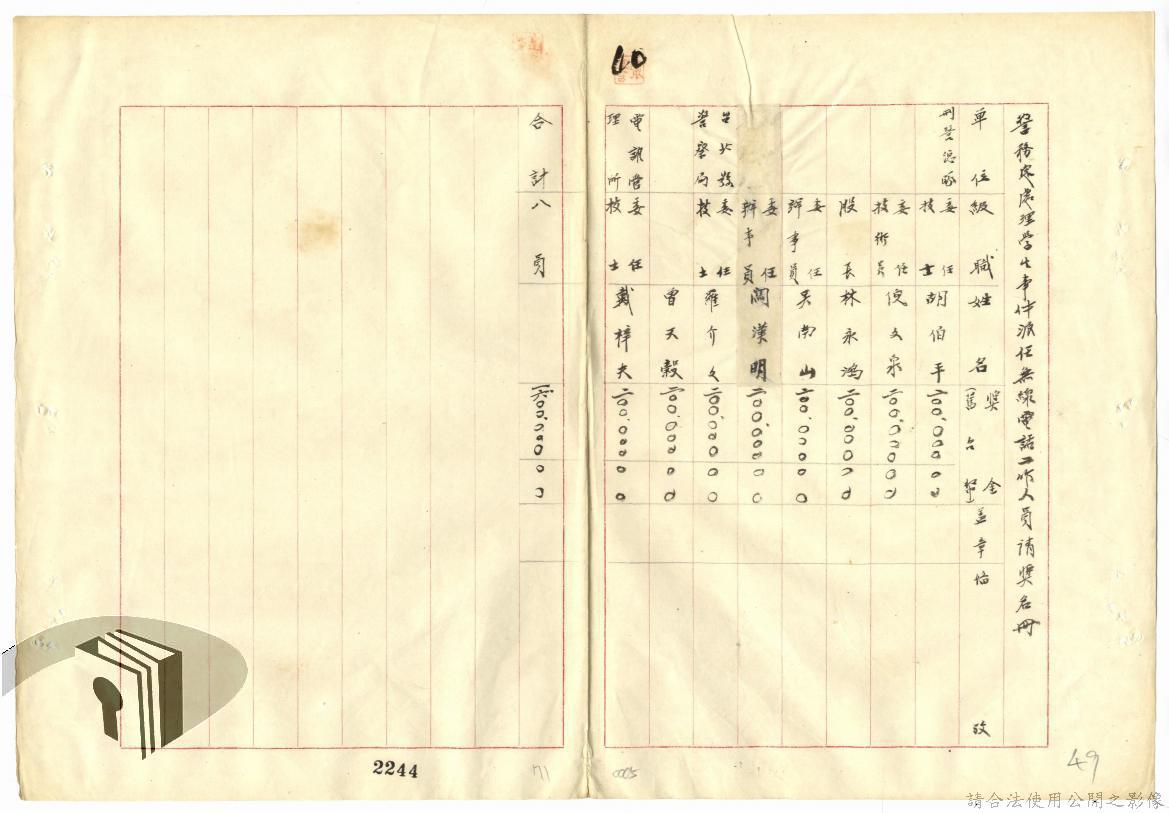 警務處處理學生事件派任無線電話工作人員請獎名冊
單位 級職 姓名 獎金 (舊台幣) 蓋章 備攷
刑警總隊 委任技士 胡伯平 二〇〇,〇〇〇 〇〇
委任技術員 倪文泉 二〇〇,〇〇〇 〇〇
股長 林永鴻 二〇〇,〇〇〇 〇〇
委任辦事員 吳南山 二〇〇,〇〇〇 〇〇
委任辦事員 闕漢明 二〇〇,〇〇〇 〇〇
台北縣警察局 委任技士 羅介文 二〇〇,〇〇〇 〇〇
曾天穀 二〇〇,〇〇〇 〇〇
電訊管理所 委任技士 戴梓夫 二〇〇,〇〇〇 〇〇
合計 八員 一六〇〇,〇〇〇 〇〇
60
2244
71
0005
49
請合法使用公開之影像